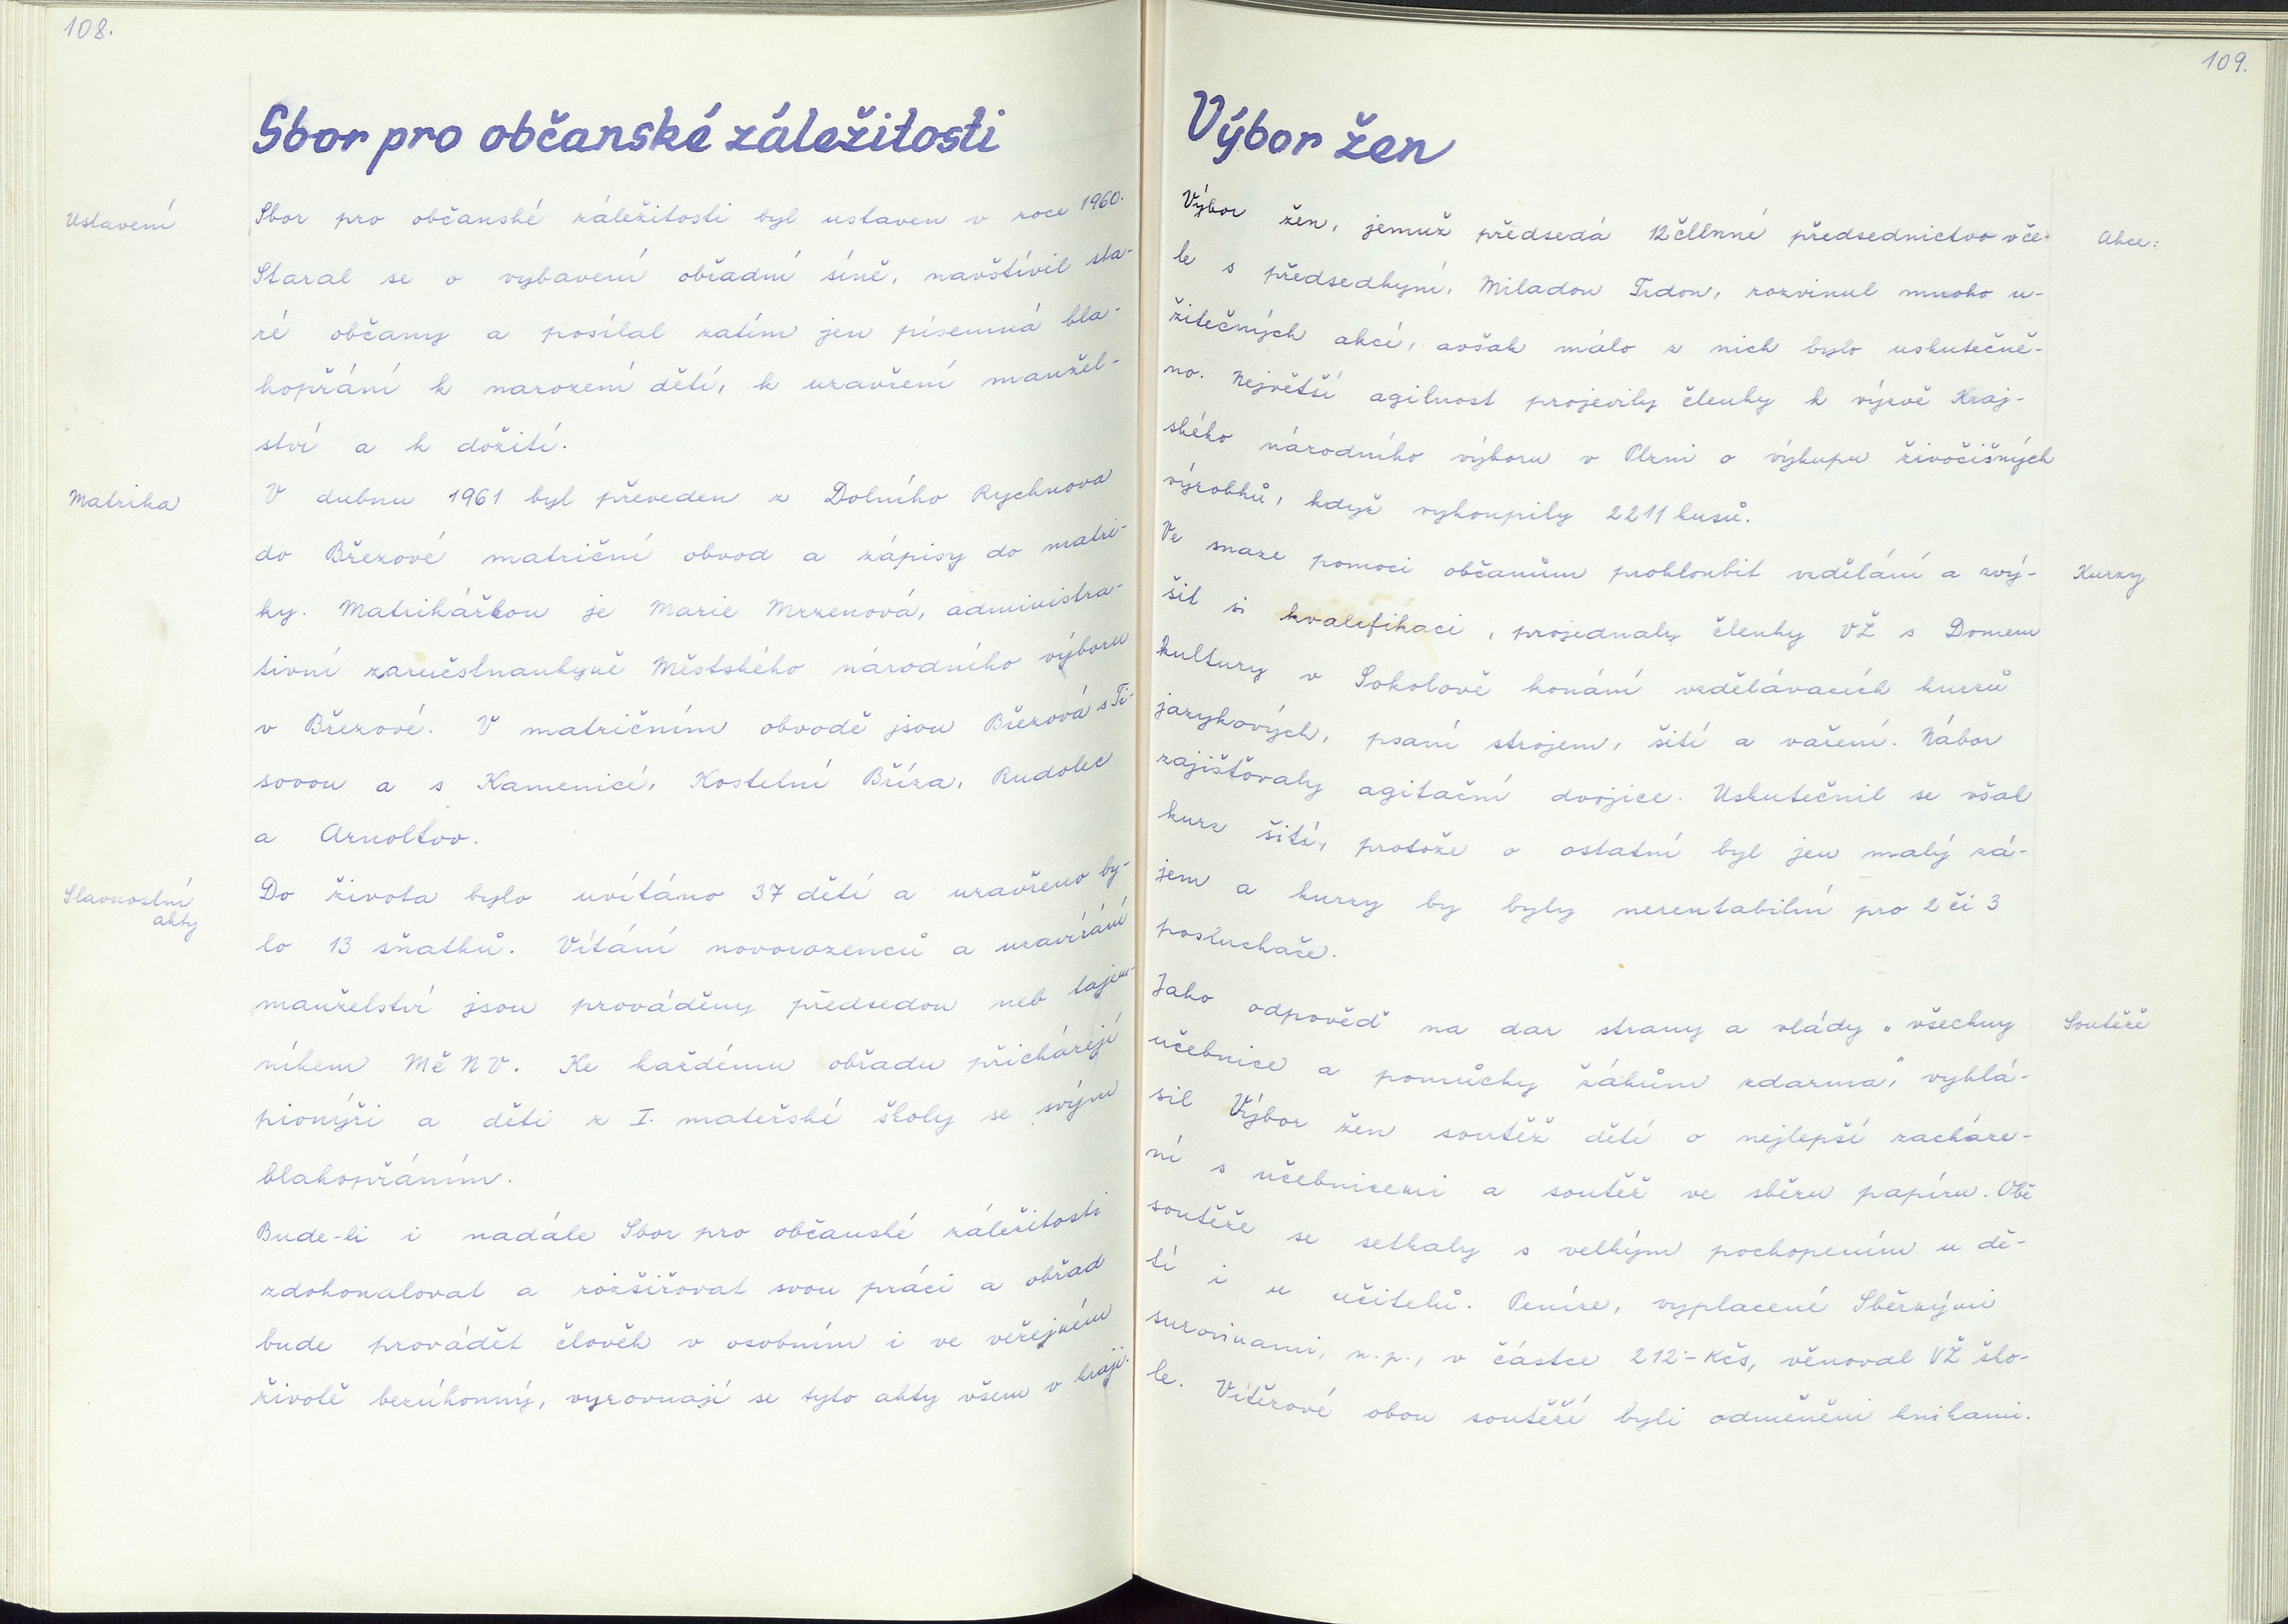 108.
Sbor pro občanské záležitosti
Ustavení
Sbor pro občanské záležitosti byl ustaven v roce 1960.
Staral se o vybavení obřadní síně, navštívil sta-
ré občany a posílal zatím jen písemná bla-
hopřání k narození dětí, k uzavření manžel-
ství a k dožití.
Matrika
V dubnu 1961 byl převeden z Dolního Rychnova
do Březové matriční obvod a zápisy do matri-
ky. Matrikářkou je Marie Mrzenová, administra-
tivní zaměstnankyně Městského národního výboru
v Březové. V matričním obvodě jsou Březová s Ti-
sovou a s Kamenicí, Kostelní Bříza, Rudolec
a Arnoltov.
Slavnostní
akty
Do života bylo uvítáno 37 dětí a uzavřeno by-
lo 13 sňatků. Vítání novorozenců a uzavírání
manželství jsou prováděny předsedou neb tajem-
níkem MěNV. Ke každému obřadu přicházejí
pionýři a děti z I. mateřské školy se svým
blahopřáním.
Bude-li i nadále Sbor pro občanské záležitosti
zdokonalovat a rozšiřovat svou práci a obřad
bude provádět člověk v osobním i ve veřejném
životě bezúhonný, vyrovnají se tyto akty všem v kraji.
109.
Výbor žen
Výbor žen, jemuž předsedá 12čllnné předsednictvo vče-
Akce:
le s předsedkyní, Miladou Trdou, rozvinul mnoho u-
žitečných akcí, avšak málo z nich bylo uskutečně-
no. Největší agilnost projevily členky k výzvě Kraj-
ského národního výboru v Plzni o výkupu živočišných
výrobků, když vykoupily 2211 kusů.
Ve snaze pomoci občanům prohloubit vzdělání a zvý-
Kurzy
šit si kvalifikaci, projednaly členky VŽ s Domem
kultury v Sokolově konání vzdělávacích kurzů
jazykových, psaní strojem, šití a vaření. Nábor
zajišťovaly agitační dvojice. Uskutečnil se však
kurz šití, protože o ostatní byl jen malý zá-
jem a kurzy by byly nerentabilní pro 2 či 3
posluchače.
Jako odpověď na dar strany a vlády „všechny
Soutěže
učebnice a pomůcky žákům zdarma," vyhlá-
sil Výbor žen soutěž dětí o nejlepší zacháze-
ní s učebnicemi a soutěž ve sběru papíru. Obě
soutěže se setkaly s velkým pochopením u dě-
tí i u učitelů. Peníze, vyplacené Sběrnými
surovinami, n.p., v částce 212.- Kčs, věnoval VŽ ško-
le. Vítězové obou soutěží byli odměněni knihami.